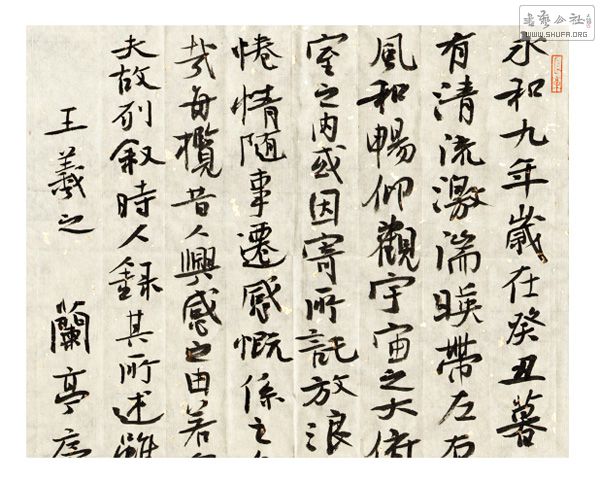 永和九年歲在癸丑暮
有清流激湍映帶左右
風和暢仰觀宇宙之大俯
室之內或因寄所託放浪
惓情隨事遷感慨係之
每攬昔人興感之由若
夫故列敘時人錄其所述雖
王羲之 蘭亭序
書藝公社
WWW.SHUFA.ORG